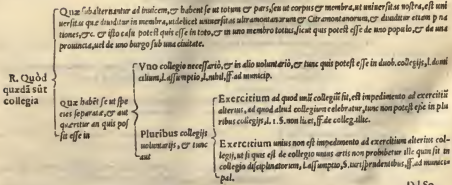 Quæ subalternantur ad inuicem, & habent se ut totum & pars, seu ut corpus & membra, ut uniuersitas nostra, est uni
uersitas quæ diuiditur in membra, uidelicet uniuersitas ultramontanorum & Citramontanorum, & diuiditur etiam p na
tiones, &c. & isto casu potest quis esse in toto, & in uno membro totius, sicut quis potest esse de uno populo, & de una
prouincia, uel de uno burgo sub una ciuitate.
R. Quòd
quædã sũt
collegia
Quæ habẽt se ut spe
cies separatæ, & aut
quæritur an quis pos
sit esse in
Vno collegio necessario, & in alio uoluntario, & tunc quis potest esse in duob. collegijs, l. domi
cilium, l. assumptio, l. nihil, ff. ad municip.
Pluribus collegijs
uoluntarijs, & tunc
aut
Exercitium ad quod unũ collegiũ fit, est impedimento ad exercitiũ
alterius, ad quod aliud collegium celebratur, tunc non potest eße in plu
ribus collegijs, l. 1. §. non licet, ff. de colleg. illic.
Exercitium unius non est impedimento ad exercitium alterius col-
legij, ut si quis est de collegio unius artis non prohibetur ille quin sit in
collegio disciplinatorum, l. assumptio, §. iurisprudentibus, ff. ad munici
pal.